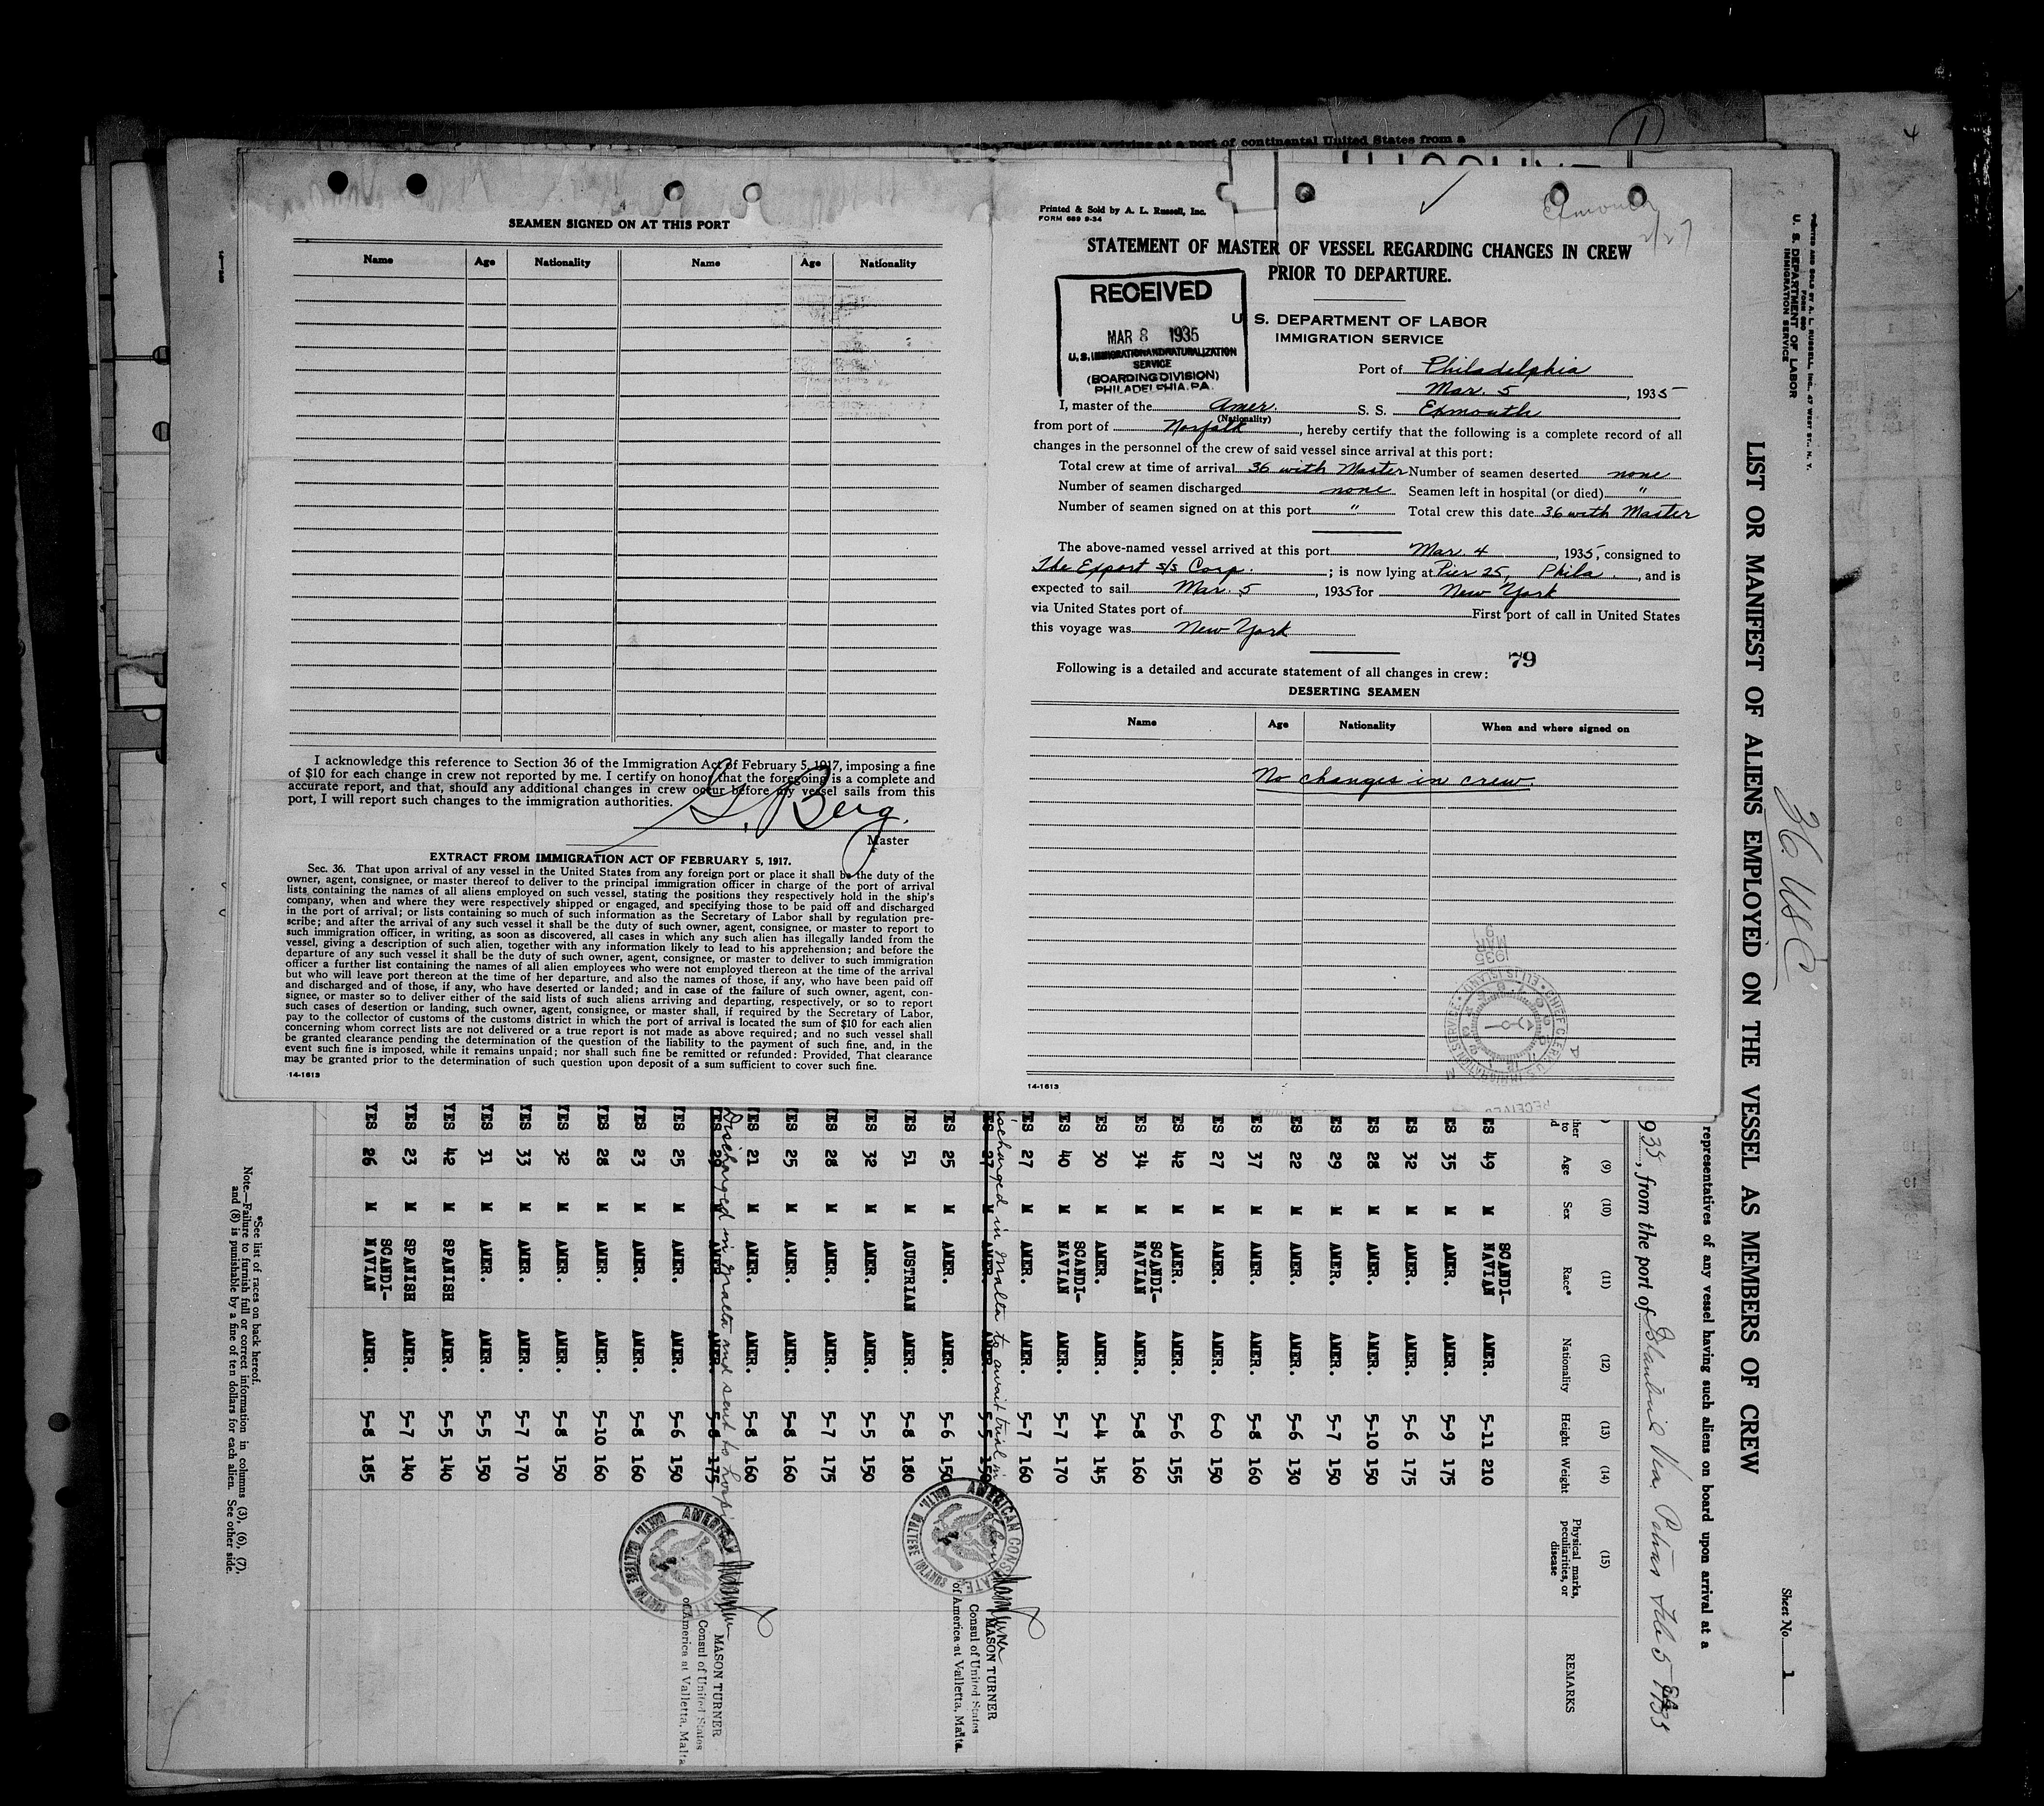 of the United States arriving at a port of continental United States from a
SEAMEN SIGNED ON AT THIS PORT
Name Age Nationality Name Age Nationality
I acknowledge this reference to Section 36 of the Immigration Act of February 5, 1917, imposing a fine
of $10 for each change in crew not reported by me. I certify on honor that the foregoing is a complete and
accurate report, and that, should any additional changes in crew occur before my vessel sails from this
port, I will report such changes to the immigration authorities.
G. Berg.
Master
EXTRACT FROM IMMIGRATION ACT OF FEBRUARY 5, 1917.
Sec. 36. That upon arrival of any vessel in the United States from any foreign port or place it shall be the duty of the
owner, agent, consignee, or master thereof to deliver to the principal immigration officer in charge of the port of arrival
lists containing the names of all aliens employed on such vessel, stating the positions they respectively hold in the ship's
company, when and where they were respectively shipped or engaged, and specifying those to be paid off and discharged
in the port of arrival; or lists containing so much of such information as the Secretary of Labor shall by regulation pre-
scribe; and after the arrival of any such vessel it shall be the duty of such owner, agent, consignee, or master to report to
such immigration officer, in writing, as soon as discovered, all cases in which any such alien has illegally landed from the
vessel, giving a description of such alien, together with any information likely to lead to his apprehension; and before the
departure of any such vessel it shall be the duty of such owner, agent, consignee, or master to deliver to such immigration
officer a further list containing the names of all alien employees who were not employed thereon at the time of the arrival
but who will leave port thereon at the time of her departure, and also the names of those, if any, who have been paid off
and discharged and of those, if any, who have deserted or landed; and in case of the failure of such owner, agent, con-
signee, or master so to deliver either of the said lists of such aliens arriving and departing, respectively, or so to report
such cases of desertion or landing, such owner, agent, consignee, or master shall, if required by the Secretary of Labor,
pay to the collector of customs of the customs district in which the port of arrival is located the sum of $10 for each alien
concerning whom correct lists are not delivered or a true report is not made as above required; and no such vessel shall
be granted clearance pending the determination of the question of the liability to the payment of such fine, and, in the
event such fine is imposed, while it remains unpaid; nor shall such fine be remitted or refunded: Provided, That clearance
may be granted prior to the determination of such question upon deposit of a sum sufficient to cover such fine.
14-1613
Printed & Sold by A. L. Russell, Inc.
FORM 689 9-34
Exmouth
2/27
STATEMENT OF MASTER OF VESSEL REGARDING CHANGES IN CREW
PRIOR TO DEPARTURE.
RECEIVED
MAR 8 1935
U. S. IMMIGRATION AND NATURALIZATION
SERVICE
(BOARDING DIVISION)
PHILADELPHIA, PA.
U. S. DEPARTMENT OF LABOR
IMMIGRATION SERVICE
Port of Philadelphia
Mar. 5, 1935
I, master of the Amer. S. S. Exmouth
(Nationality)
from port of Norfolk, hereby certify that the following is a complete record of all
changes in the personnel of the crew of said vessel since arrival at this port:
Total crew at time of arrival 36 with Master Number of seamen deserted none
Number of seamen discharged none Seamen left in hospital (or died) "
Number of seamen signed on at this port " Total crew this date 36 with Master
The above-named vessel arrived at this port Mar. 4, 1935, consigned to
The Export s/s Corp.; is now lying at Pier 25, Phila., and is
expected to sail Mar. 5, 1935 for New York
via United States port of First port of call in United States
this voyage was New York
79
Following is a detailed and accurate statement of all changes in crew:
DESERTING SEAMEN
Name Age Nationality When and where signed on
No changes in crew.
MAR 1935
14-1613
PRINTED AND SOLD BY A. L. RUSSELL, INC., 47 WEST ST., N. Y.
Form 680
U. S. DEPARTMENT OF LABOR
IMMIGRATION SERVICE
36 USC
Sheet No. 1
LIST OR MANIFEST OF ALIENS EMPLOYED ON THE VESSEL AS MEMBERS OF CREW
representatives of any vessel having such aliens on board upon arrival at a
935, from the port of Istanbul Via. Patras Feb 5 1935
(9) (10) (11) (12) (13) (14) (15)
Age Sex Race* Nationality Height Weight Physical marks, peculiarities, or disease REMARKS
ES 49 M SCANDI-NAVIAN AMER. 5-11 210
ES 35 M AMER. AMER. 5-9 175
ES 32 M AMER. AMER. 5-6 175
ES 28 M AMER. AMER. 5-10 150
ES 29 M AMER. AMER. 5-7 150
ES 22 M AMER. AMER. 5-6 130
ES 37 M AMER. AMER. 5-8 160
ES 27 M AMER. AMER. 6-0 150
ES 42 M AMER. AMER. 5-6 155
ES 34 M SCANDI-NAVIAN AMER. 5-8 160
ES 30 M AMER. AMER. 5-4 145
ES 40 M SCANDI-NAVIAN AMER. 5-7 170
ES 27 M AMER. AMER. 5-7 160
ischarged in Malta to await trial in
ES 27 M AMER. AMER. 5-5
AMERICAN CONSULATE MALTA. MALTESE ISLANDS
MASON TURNER
Consul of United States
of America at Valletta, Malta.
ES 25 M AMER. AMER. 5-6 150
YES 51 M AUSTRIAN AMER. 5-8 180
YES 32 M AMER. AMER. 5-5 150
YES 28 M AMER. AMER. 5-7 175
YES 25 M AMER. AMER. 5-8 160
YES 21 M AMER. AMER. 5-8 160
Discharged in Malta and sent to hospi
YES 29 M AMER. AMER. 5-8 175
MASON TURNER
Consul of United States
of America at Valletta, Malta
YES 25 M AMER. AMER. 5-6 150
YES 23 M AMER. AMER. 5-8 160
YES 28 M AMER. AMER. 5-10 160
YES 32 M AMER. AMER. 5-8 150
YES 33 M AMER. AMER. 5-7 170
YES 31 M AMER. AMER. 5-5 150
YES 42 M SPANISH AMER. 5-5 140
YES 23 M SPANISH AMER. 5-7 140
YES 26 M SCANDI-NAVIAN AMER. 5-8 185
*See list of races on back hereof.
Note.—Failure to furnish full or correct information in columns (3), (6), (7),
and (8) is punishable by a fine of ten dollars for each alien. See other side.